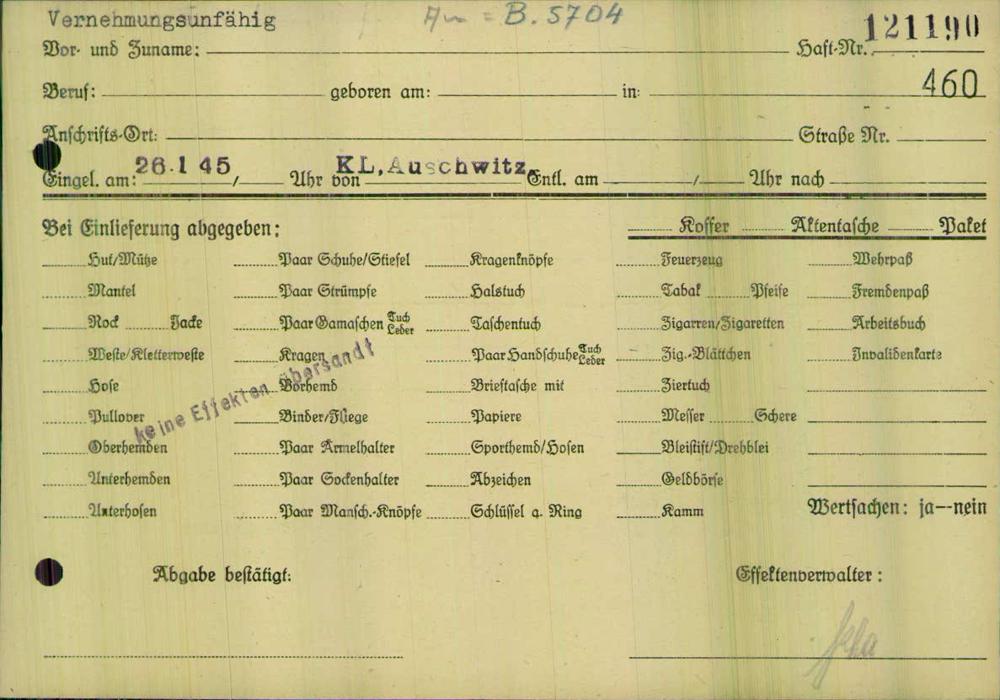 Vernehmungsunfähig B. 5704 121190
Vor- und Zuname: Haft-Nr.
Beruf: geboren am: in: 460
Anschrifts-Ort: Straße Nr.
26.1 45 KL, Auschwitz
Eingel. am: / Uhr von Entl. am / Uhr nach
Bei Einlieferung abgegeben: Koffer Aktentasche Paket
Hut/Mütze Paar Schuhe/Stiefel Kragenknöpfe Feuerzeug Wehrpaß
Mantel Paar Strümpfe Halstuch Tabak Pfeife Fremdenpaß
Rock Jacke Paar Gamaschen Tuch Leder Taschentuch Zigarren/Zigaretten Arbeitsbuch
Weste/Kletterweste Kragen Paar Handschuhe Tuch Leder Zig.-Blättchen Invalidenkarte
Hose Vorhemd Brieftasche mit Ziertuch
keine Effekten übersandt
Pullover Binder/Fliege Papiere Messer Schere
Oberhemden Paar Ärmelhalter Sporthemd/Hosen Bleistift/Drehblei
Unterhemden Paar Sockenhalter Abzeichen Geldbörse
Unterhosen Paar Mansch.-Knöpfe Schlüssel a. Ring Kamm Wertsachen: ja--nein
Abgabe bestätigt: Effektenverwalter: